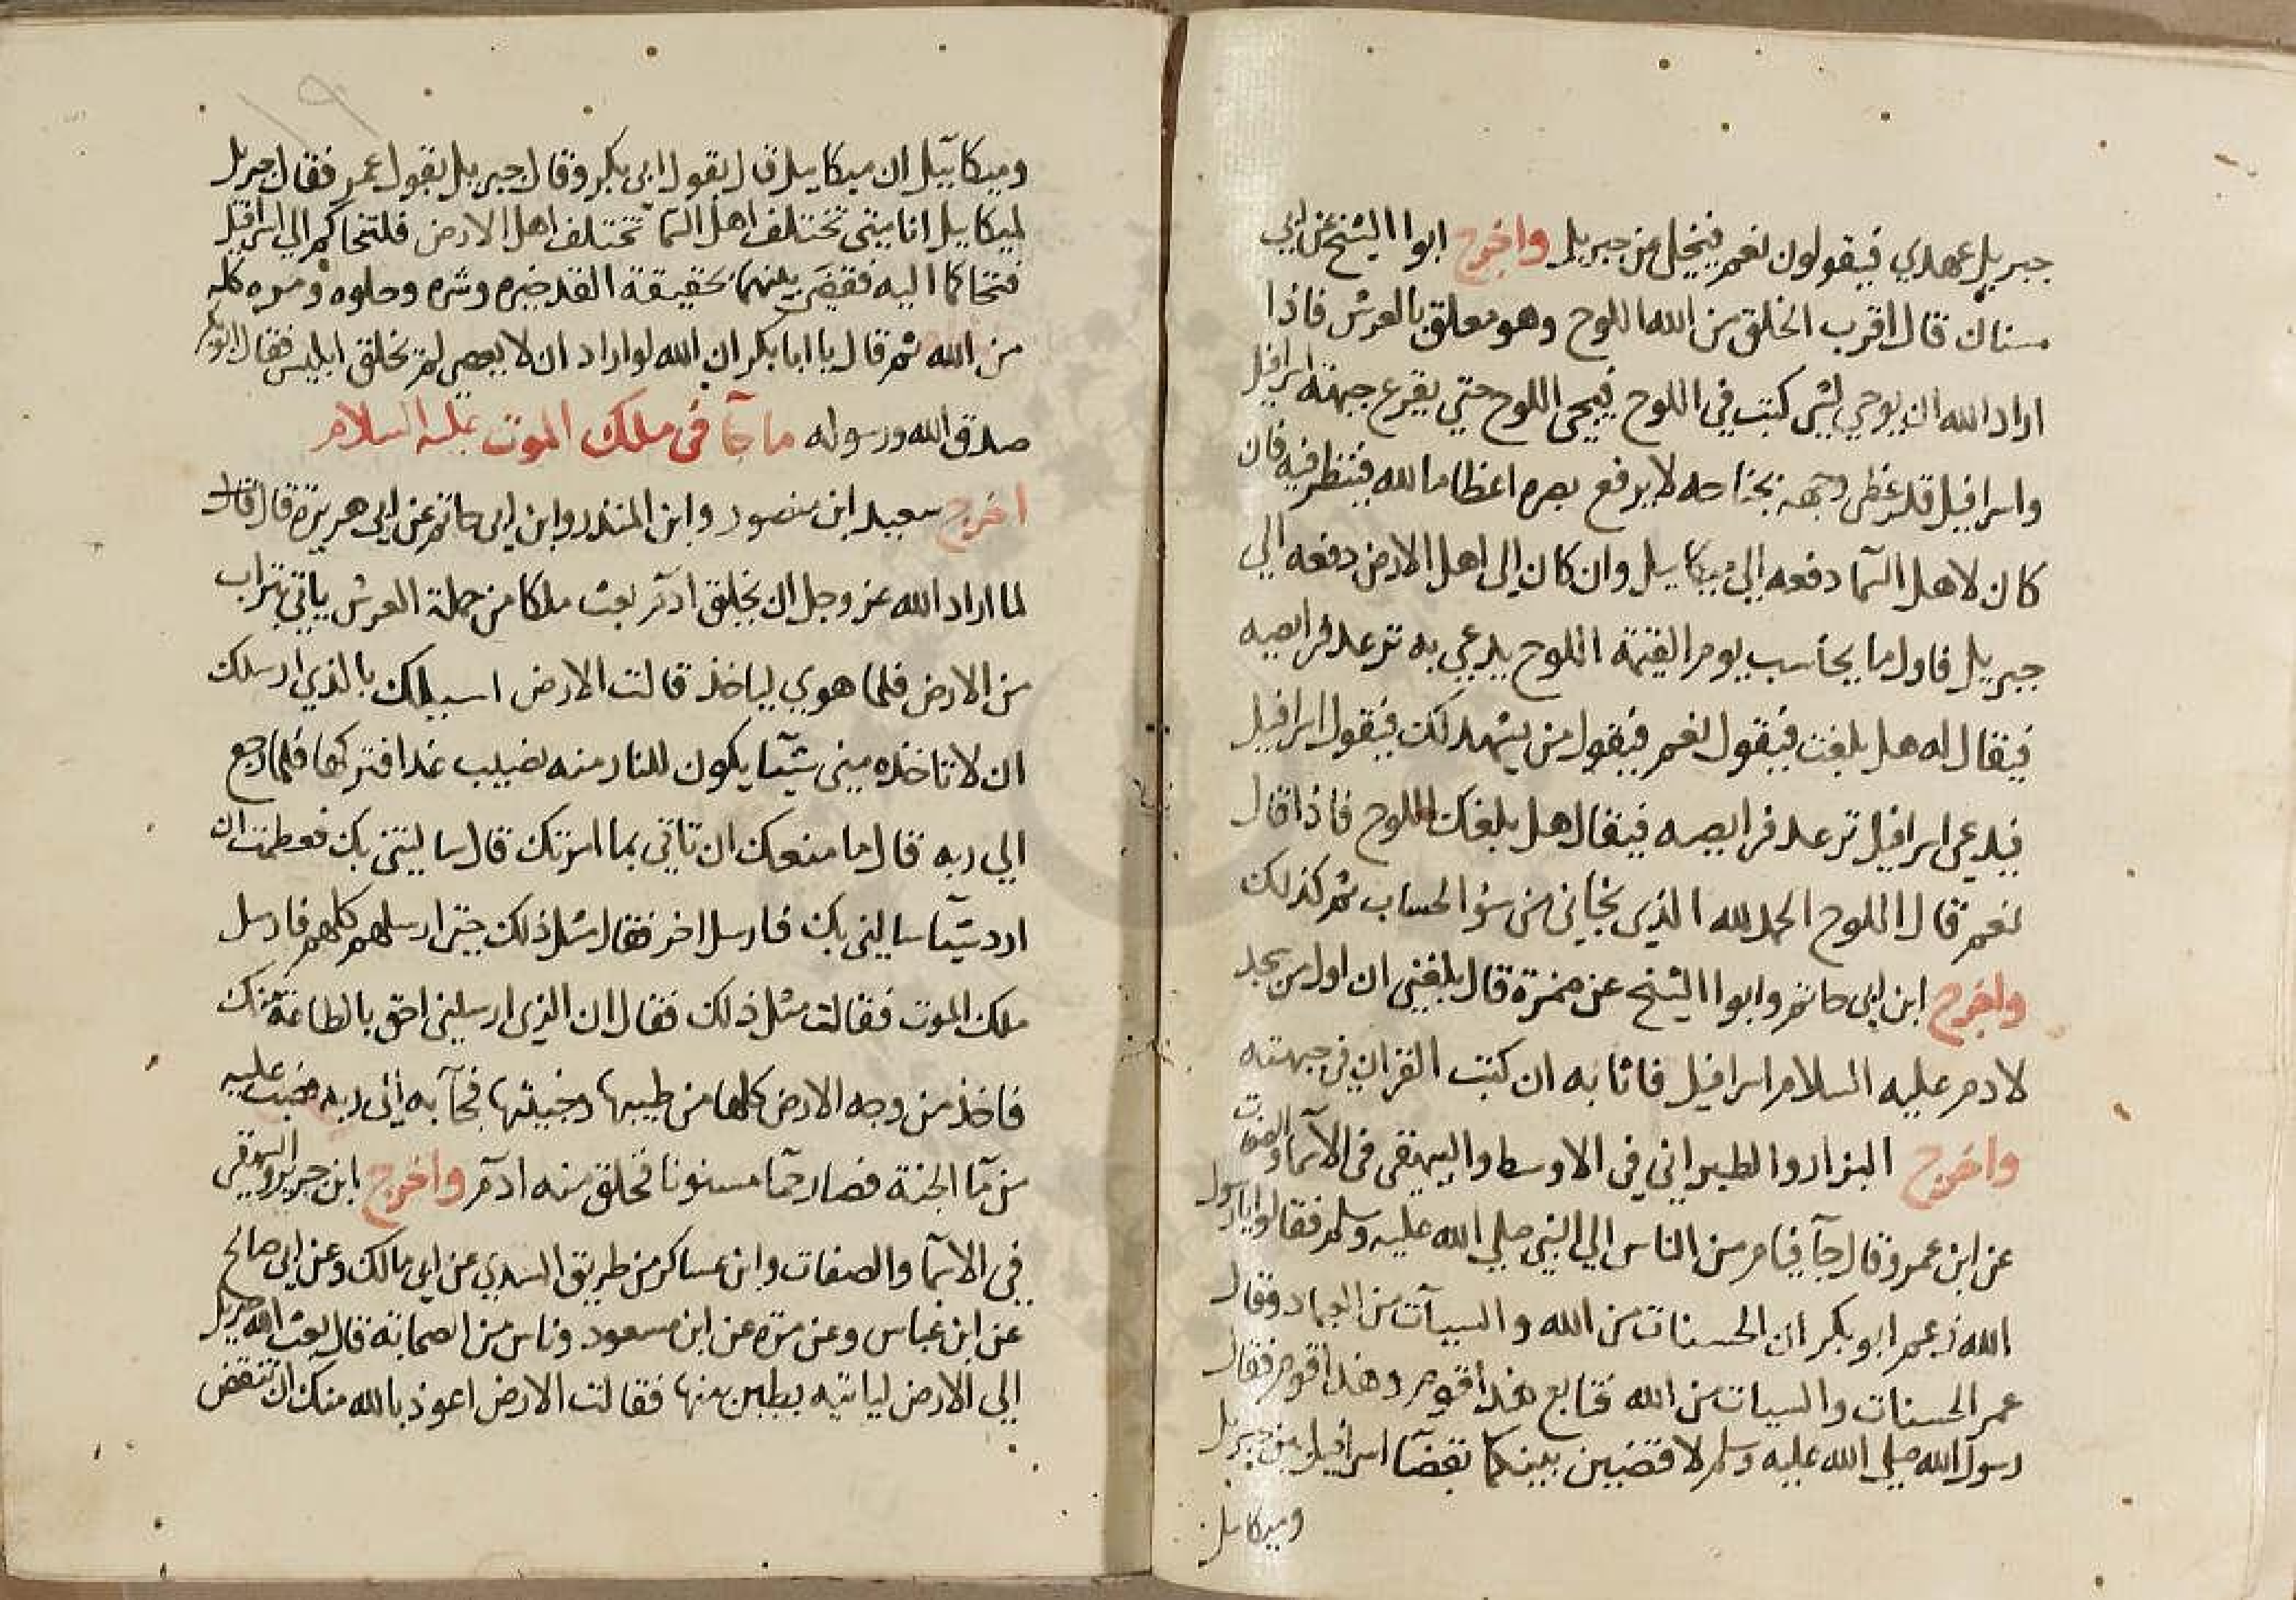 جبريل عهدي فيقولون نعم فيخلى من جبريل واخرج ابوا الشيخ عن ابي
سنان قال اقرب الخلق من الله اللوح وهو معلق بالعرش فاذا
اراد الله ان يوحي بشي كتب في اللوح فيجي اللوح حتي يقرع جبهة اسرافيل
واسرافيل قد غطى وجهه بجناحه لا يرفع بصره اعظاما لله فينظر فيه فان
كان لاهل السمآ دفعه الي ميكاييل وان كان الي اهل الارض دفعه الي
جبريل فاول ما يحاسب يوم القيمة اللوح يدعي به ترعد فرايصه
فيقال له هل بلغت فيقول نعم فيقول من يشهد لك فيقول اسرافيل
فيدعى اسرافيل ترعد فرايصه فيقال هل بلغك اللوح فاذا قال
نعم قال اللوح الحمد لله الذي نجاني من سؤ الحساب ثم كذلك
واخرج ابن ابي حاتم وابوا الشيخ عن ضمرة قال بلغني ان اول من سجد
لادم عليه السلام اسرافيل فاثابه ان كتب القران في جبهته
واخرج البزار والطبراني في الاوسط والبيهقي في الاسمآ والصفات
عن ابن عمرو قال جآ فيام من الناس الي النبي صلي الله عليه وسلم فقالوا يارسول
الله زعم ابو بكر ان الحسنات من الله والسيآت من العباد وقال
عمر الحسنات والسيات من الله فتابع هذا قوم وهذا قوم فقال
رسول الله صلي الله عليه وسلم لاقضين بينكما بقضآ اسرافيل بين جبريل
وميكاييل
وميكآئيل ان ميكاييل قال بقول ابي بكر وقال جبريل بقول عمر فقال جبريل
لميكاييل انا متى تختلف اهل السمآ تختلف اهل الارض فلنتحاكم الي اسرافيل
فتحاكما اليه فقضى بينهما بحقيقة القدر خيره وشره وحلوه ومره كله
من الله ثم قال يا ابا بكر ان الله لو اراد ان لا يعصى لم يخلق ابليس فقال ابو بكر
صدق الله ورسوله ما جآ في ملك الموت عليه السلام
اخرج سعيد ابن منصور وابن المنذر وابن ابي حاتم عن ابي هريرة قال قال
لما اراد الله عز وجل ان يخلق ادم بعث ملكا من حملة العرش ياتي بتراب
من الارض فلما هوي لياخذ قالت الارض اسيلك بالذي ارسلك
ان لا تاخذه مني شيئا يكون للنار منه نصيب غدا فتركها فلما رجع
الي ربه قال ما منعك ان تاتي بما امرتك قال سالتني بك فعظمت ان
ارد شيئا سالني بك فارسل اخر فقال مثل ذلك حتى ارسلهم كلهم فارسل
ملك الموت فقالت مثل ذلك فقال ان الذي ارسلني احق بالطاعة منك
فاخذ من وجه الارض كلها من طيبها وخبيثها فجآ به الى ربه فصب عليه
من مآ الجنة فصار حمآ مسنونا فخلق منه ادم واخرج ابن جرير والبيهقي
في الاسمآ والصفات وابن عساكر من طريق السدي عن ابي مالك وعن ابي صالح
عن ابن عباس وعن مرة عن ابن مسعود وناس من الصحابة قال بعث الله جبريل
الي الارض لياتيه بطين منها فقالت الارض اعوذ بالله منك ان تنقض